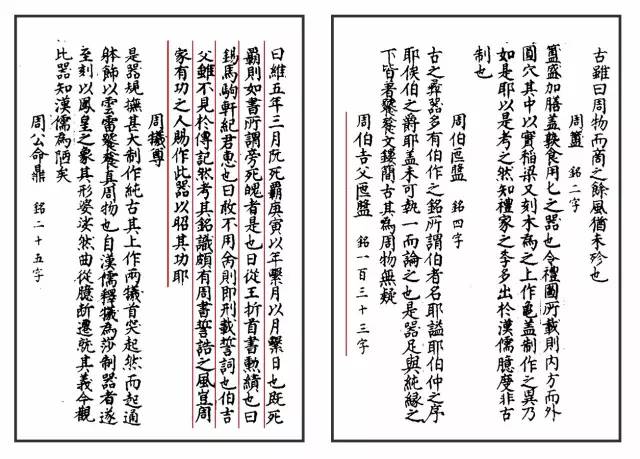 古雖曰周物而商之餘風猶未殄也
周簠 銘二字
簠盛加膳蓋熟食用匕之器也今禮圖所載則内方而外
圓穴其中以實稻粱又刻木為之上作龜蓋制作之異乃
如是耶以是考之然知禮家之李多出於漢儒臆度非古
制也
周伯匜盤 銘四字
古之彝器多有伯作之銘所謂伯者名耶謚耶伯仲之序
耶侯伯之爵耶蓋未可執一而論之也是器足與純緣之
下皆著饕餮文鏤簡古其為周物無疑
周伯吉父匜盤 銘一百三十三字
曰維五年三月既死霸庚寅以年繫月以月繫日也既死
霸則如書所謂旁死魄者是也曰從王折首書勳績也曰
錫馬駒軒紀君惠也曰敢不用令則即刑載誓詞也伯吉
父雖不見於傳記然考其銘識頗有周書誓誥之風豈周
家有功之人賜作此器以昭其功耶
周犧尊
是器規撫甚大制作純古其上作兩犧首突起然而起通
躰飾以雲雷饕餮真周物也自漢儒釋犧為莎制器者遂
至刻以鳳皇之象其形婆娑然曲從臆斷遷就其義今觀
比器知漢儒為陋矣
周公命鼎 銘二十五字